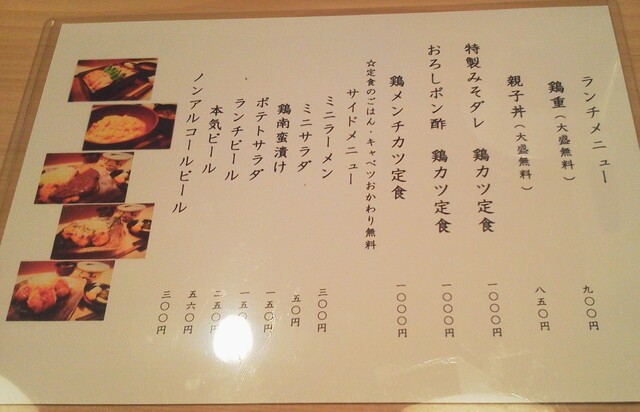 ランチメニュー
鶏重（大盛無料） 九〇〇円
親子丼（大盛無料） 八五〇円
特製みそダレ 鶏カツ定食 一〇〇〇円
おろしポン酢 鶏カツ定食 一〇〇〇円
鶏メンチカツ定食 一〇〇〇円
☆定食のごはん・キャベツおかわり無料
サイドメニュー
ミニラーメン 三〇〇円
ミニサラダ 五〇円
鶏南蛮漬け 一五〇円
ポテトサラダ 一五〇
ランチビール 二五〇
本気ビール 五六〇円
ノンアルコールビール 三〇〇円